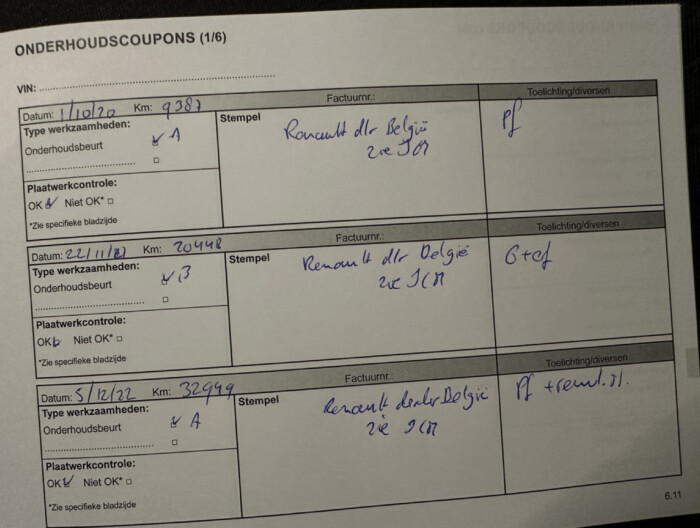 ONDERHOUDSCOUPONS (1/6)
VIN:
Datum: 1/10/20 Km: 9387 Factuurnr.: Toelichting/diversen
Type werkzaamheden: Stempel
Onderhoudsbeurt A
Renault dlr België
zie ICM
Pf
Plaatwerkcontrole:
OK Niet OK*
*Zie specifieke bladzijde
Datum: 22/11/21 Km: 20448 Factuurnr.: Toelichting/diversen
Type werkzaamheden: Stempel
Onderhoudsbeurt B
Renault dlr België
zie ICM
Plaatwerkcontrole:
OK Niet OK*
*Zie specifieke bladzijde
Datum: 5/12/22 Km: 32949 Factuurnr.: Toelichting/diversen
Type werkzaamheden: Stempel
Onderhoudsbeurt A
Renault dealer België
zie ICM
Pf + remvl.
Plaatwerkcontrole:
OK Niet OK*
*Zie specifieke bladzijde
6.11